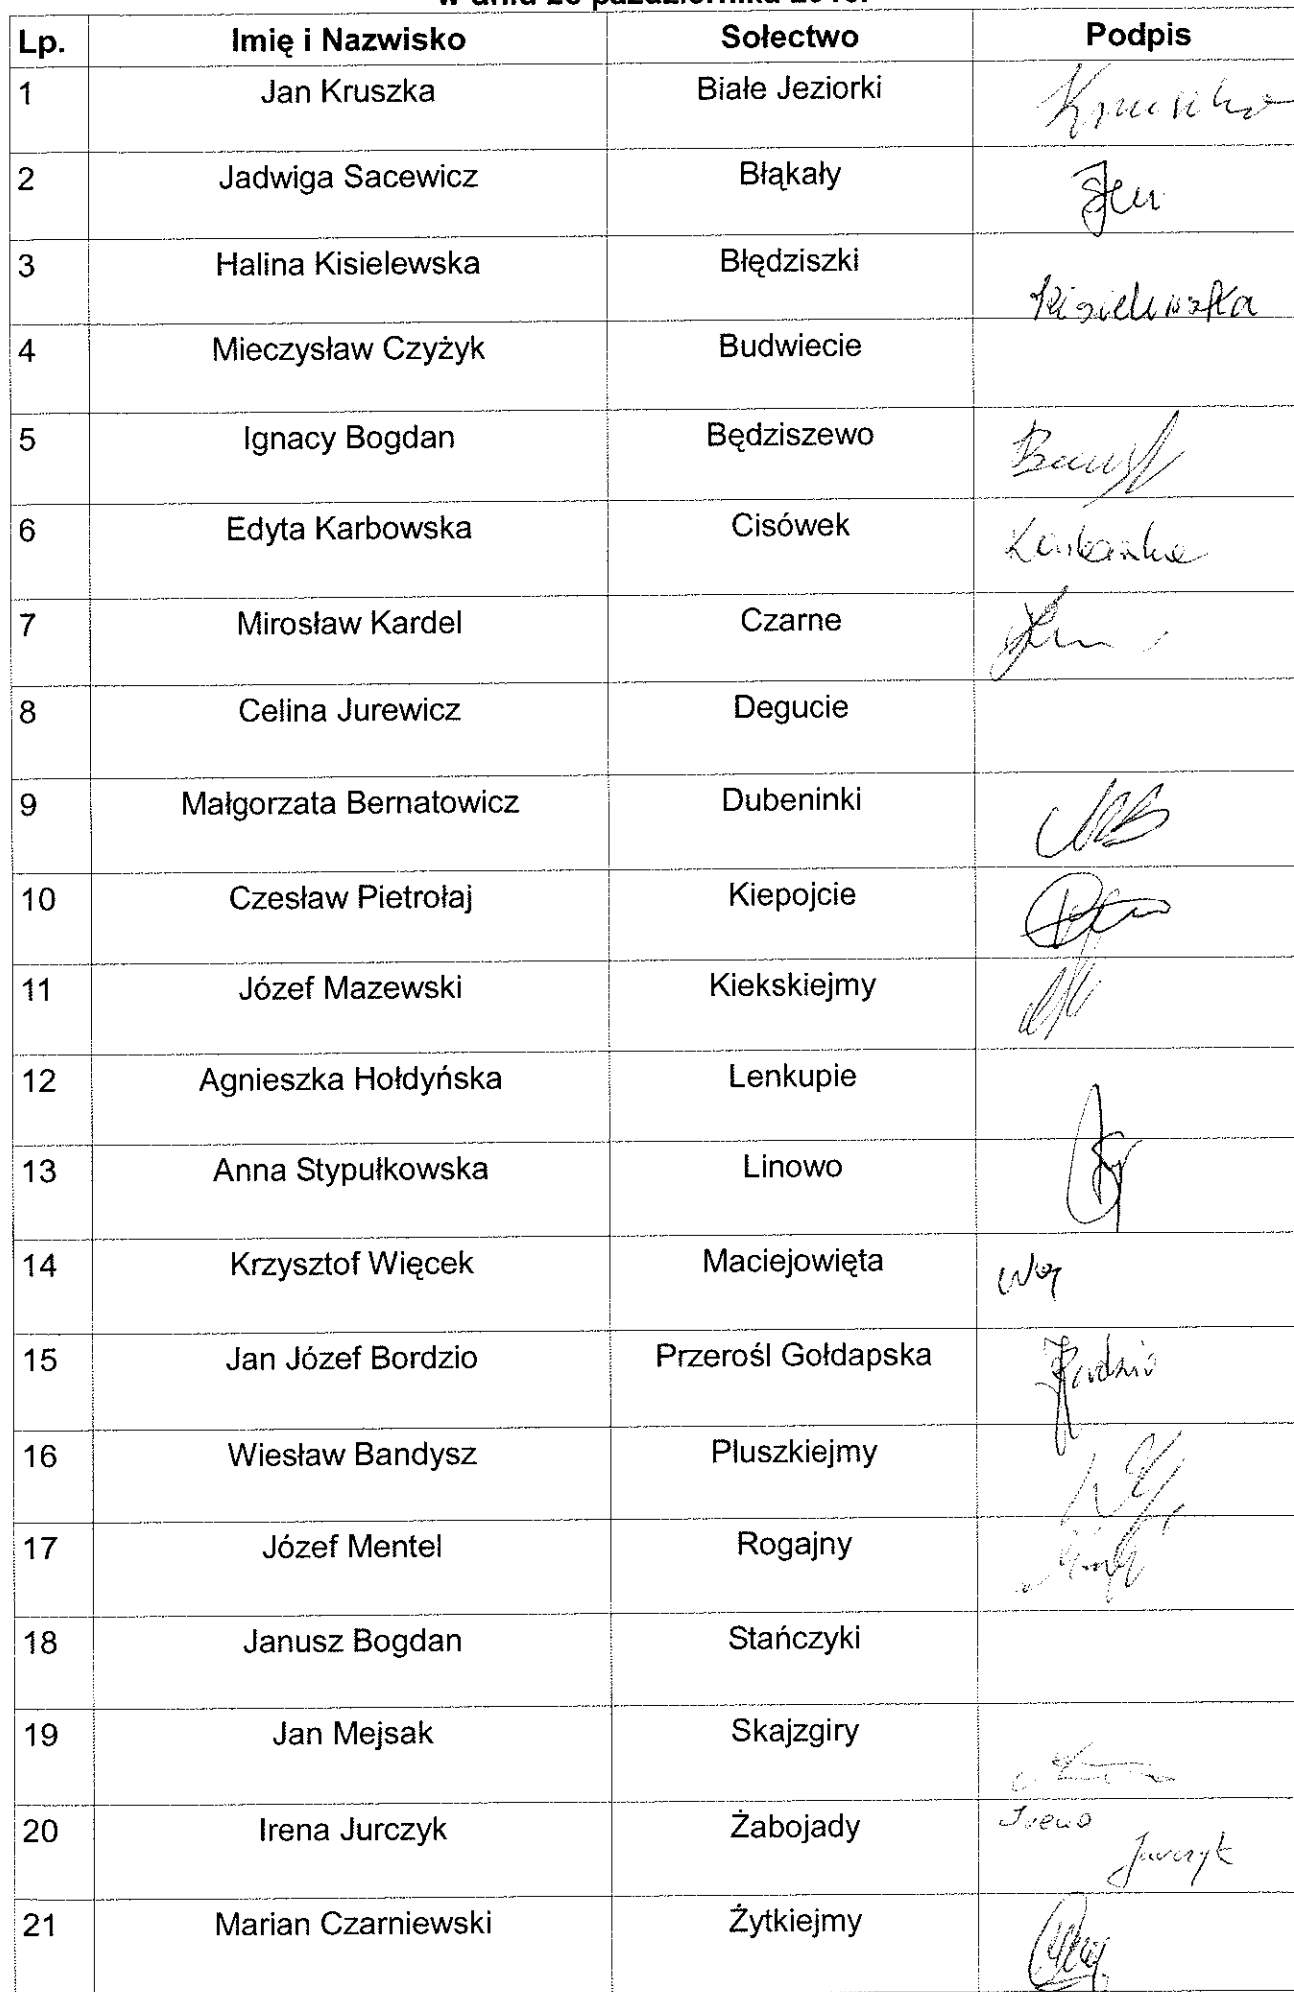 Lp. Imię i Nazwisko Sołectwo Podpis
1 Jan Kruszka Białe Jeziorki Kruszka
2 Jadwiga Sacewicz Błąkały
3 Halina Kisielewska Błędziszki Kisielewska
4 Mieczysław Czyżyk Budwiecie
5 Ignacy Bogdan Będziszewo
6 Edyta Karbowska Cisówek
7 Mirosław Kardel Czarne
8 Celina Jurewicz Degucie
9 Małgorzata Bernatowicz Dubeninki
10 Czesław Pietrołaj Kiepojcie
11 Józef Mazewski Kiekskiejmy
12 Agnieszka Hołdyńska Lenkupie
13 Anna Stypułkowska Linowo
14 Krzysztof Więcek Maciejowięta
15 Jan Józef Bordzio Przerośl Gołdapska
16 Wiesław Bandysz Pluszkiejmy
17 Józef Mentel Rogajny
18 Janusz Bogdan Stańczyki
19 Jan Mejsak Skajzgiry
20 Irena Jurczyk Żabojady Irena Jurczyk
21 Marian Czarniewski Żytkiejmy